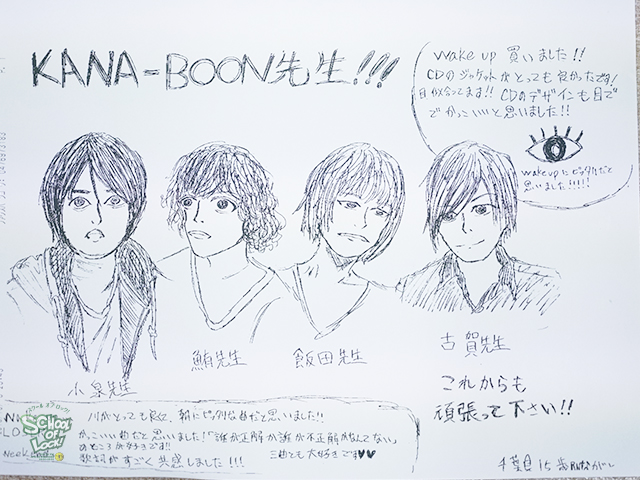 KANA-BOON先生!!!
Wake up 買いました!!
CDのジャケットがとっても良かったです!
目が合ってます!! CDのデザインも目で
でかっこいいと思いました!!
Wake upにピッタリだと
思いました!!!!!
小泉先生
鮪先生
飯田先生
古賀先生
これからも
頑張って下さい!!
がとっても良くて、朝にピッタリな曲だと思いました!!
かっこいい曲だと思いました!「誰が正解か誰が不正解かなんてない」
のところが好きです!!
歌詞がすごく共感しました!!!
三曲とも大好きです♥♥
SCHOOL OF LOCK!
千葉県 15歳